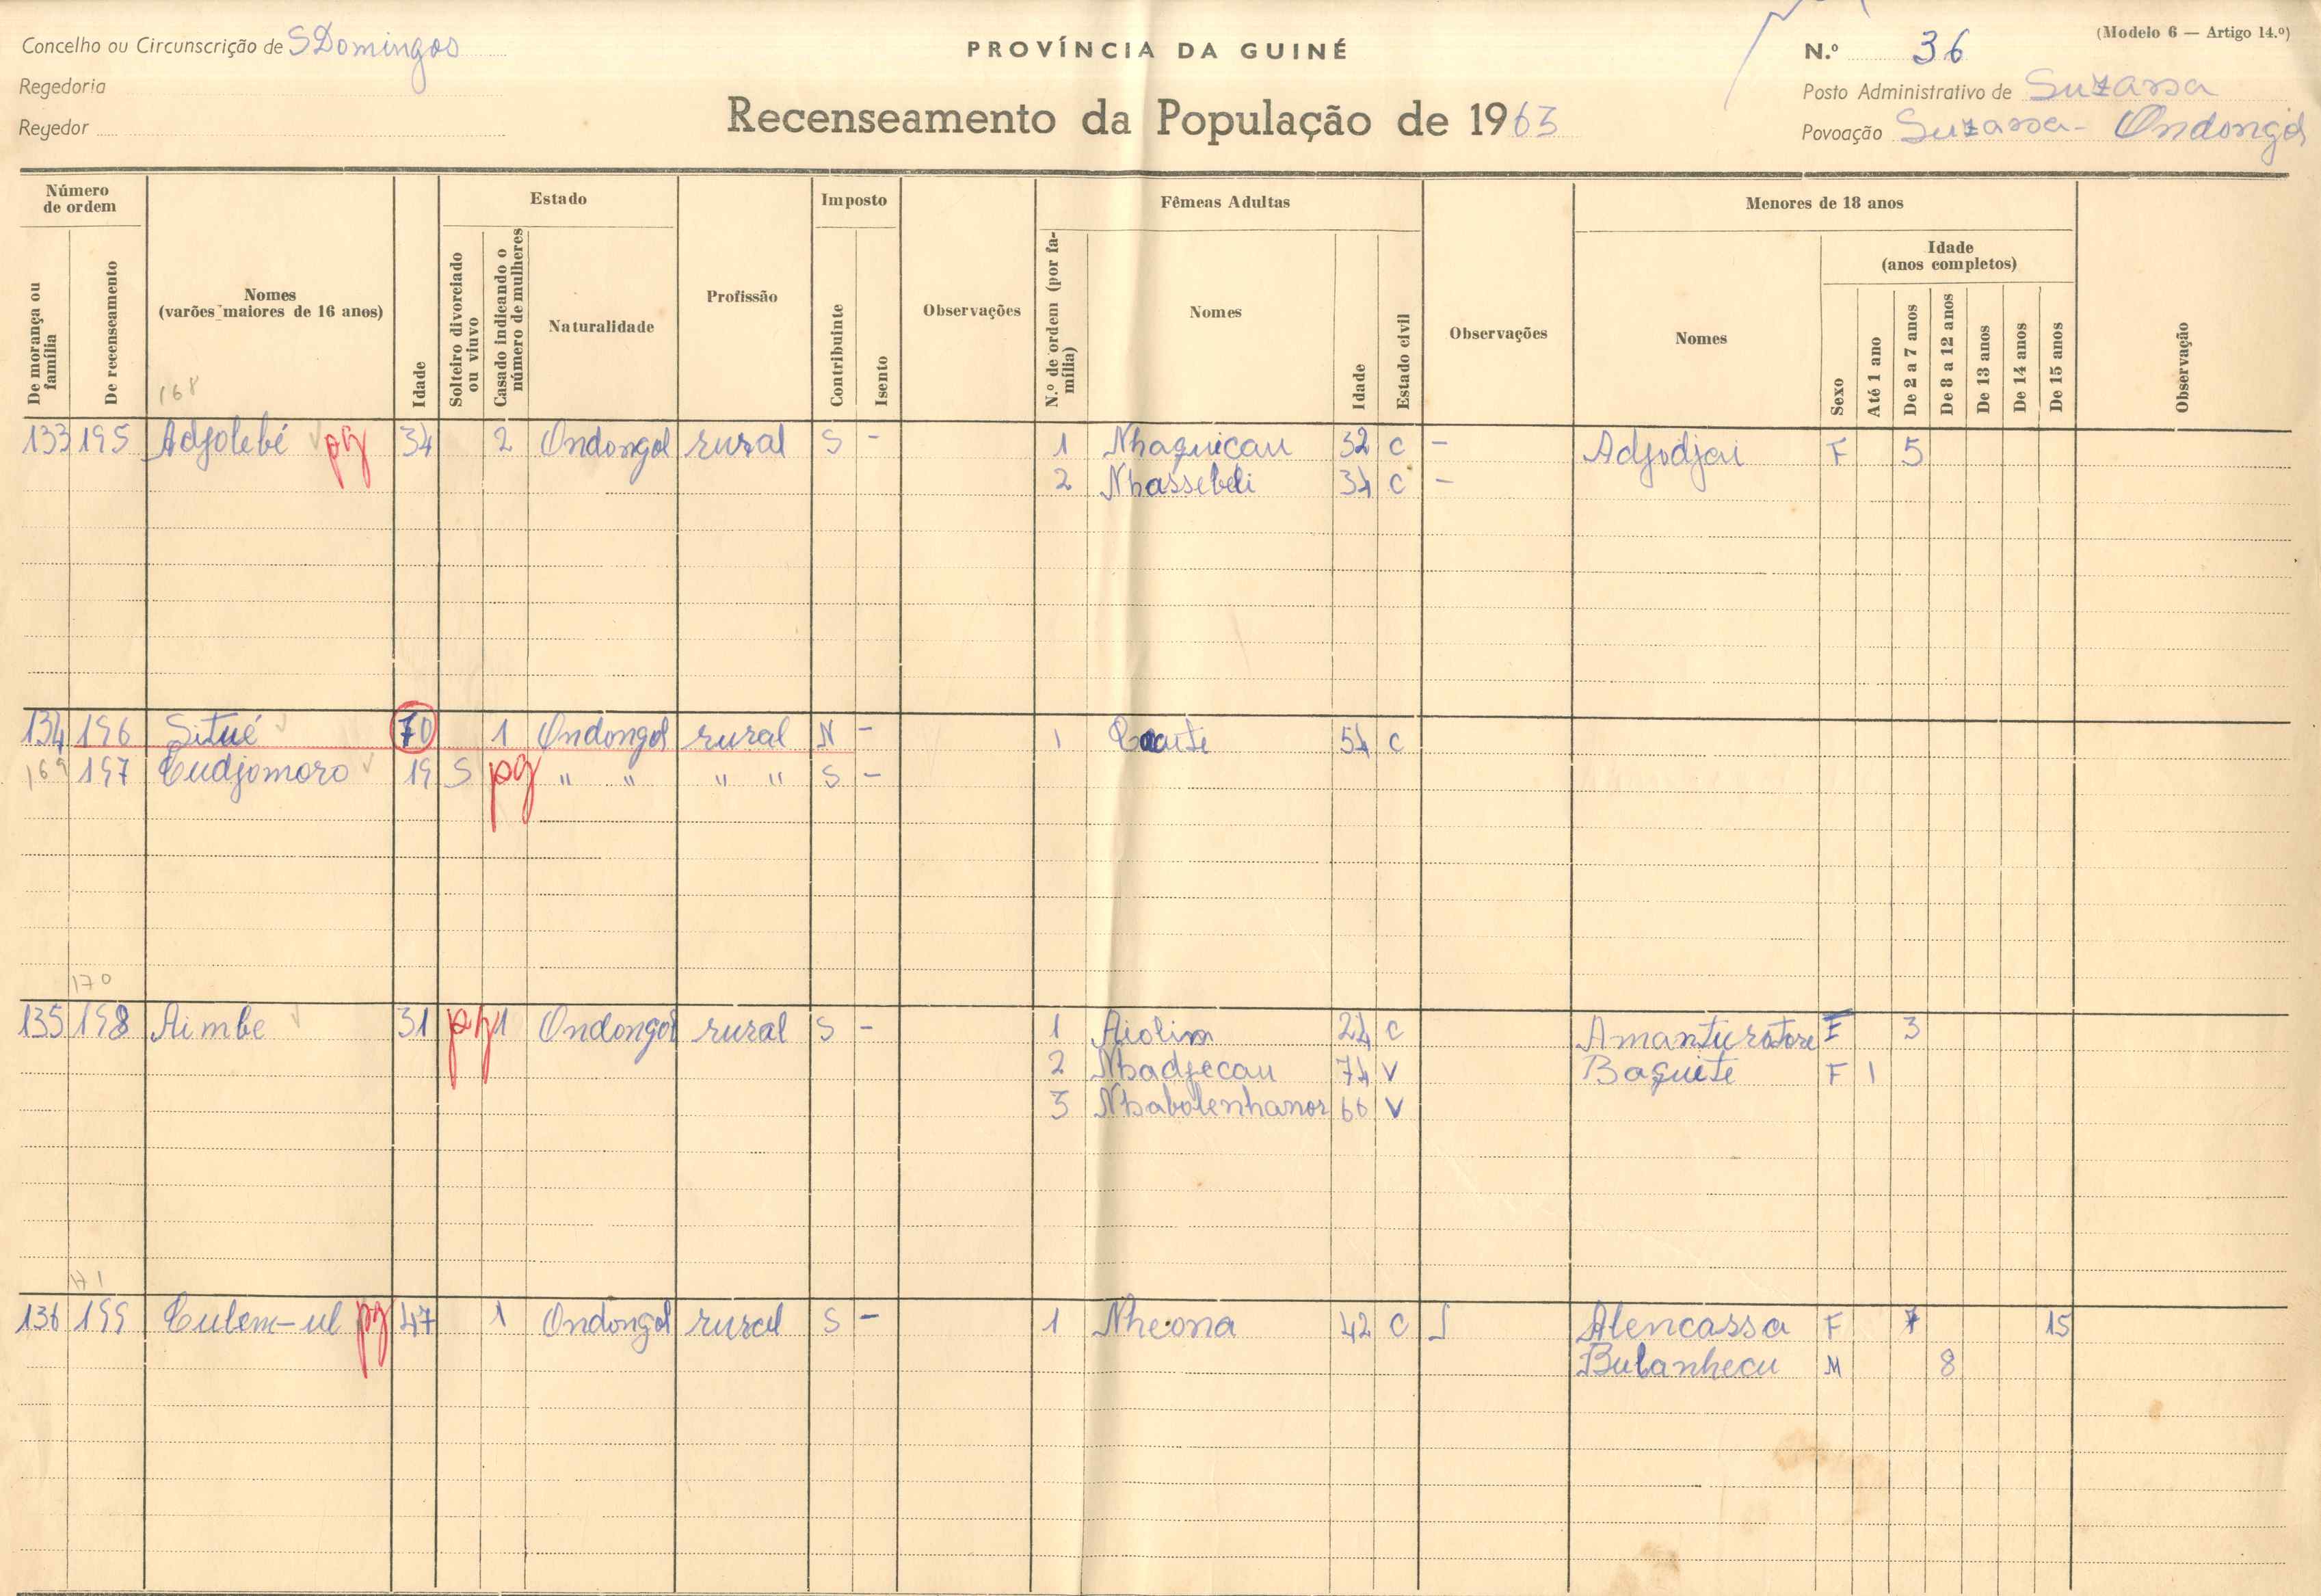 Concelho ou Circunscrição de S Domingos
PROVÍNCIA DA GUINÉ
N.º 36
(Modelo 6 — Artigo 14.º)
Regedoria
Posto Administrativo de Suzana
Regedor
Recenseamento da População de 1963
Povoação Suzana - Ondongol
Número de ordem
De morança ou família
De recenseamento
Nomes
(varões maiores de 16 anos)
168
Idade
Estado
Solteiro divorciado ou viuvo
Casado indicando o número de mulheres
Naturalidade
Profissão
Imposto
Contribuinte
Isento
Observações
Fêmeas Adultas
N.º de ordem (por família)
Nomes
Idade
Estado civil
Observações
Menores de 18 anos
Nomes
Sexo
Idade
(anos completos)
Até 1 ano
De 2 a 7 anos
De 8 a 12 anos
De 13 anos
De 14 anos
De 15 anos
Observação
133 195 Adjolebé pg 34 2 Ondongol rural S - 1 Nhaquicau 32 C - Adjodjai F 5
2 Nhassebeli 34 C -
134 196 Situé 70 1 Ondongol rural N - 1 54 C
169 197 Cudjomoro 19 S pg " " " " S -
170
135 198 Aimbe 31 pg 1 Ondongol rural S - 1 Aiolim 24 C Amanturotore F 3
2 Nhadjecau 74 V Baquite F 1
3 Nhabolenhanor 66 V
171
136 199 Culem-ul pg 47 1 Ondongol rural S - 1 Nheona 42 C Alencassa F 7 15
Bulanhecu M 8